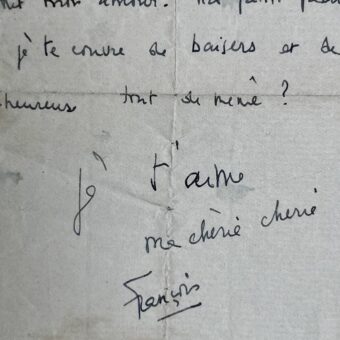 mon amour. Ma
je te couvre de baisers et de
heureux tout de même ?
Je t'aime
ma chérie chérie
François